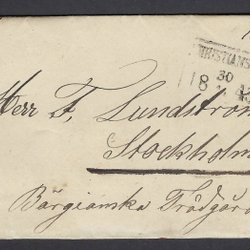 CHRISTIANS
30
8
Herr F. Lundström
Stockholm
Bergianska Trädgår